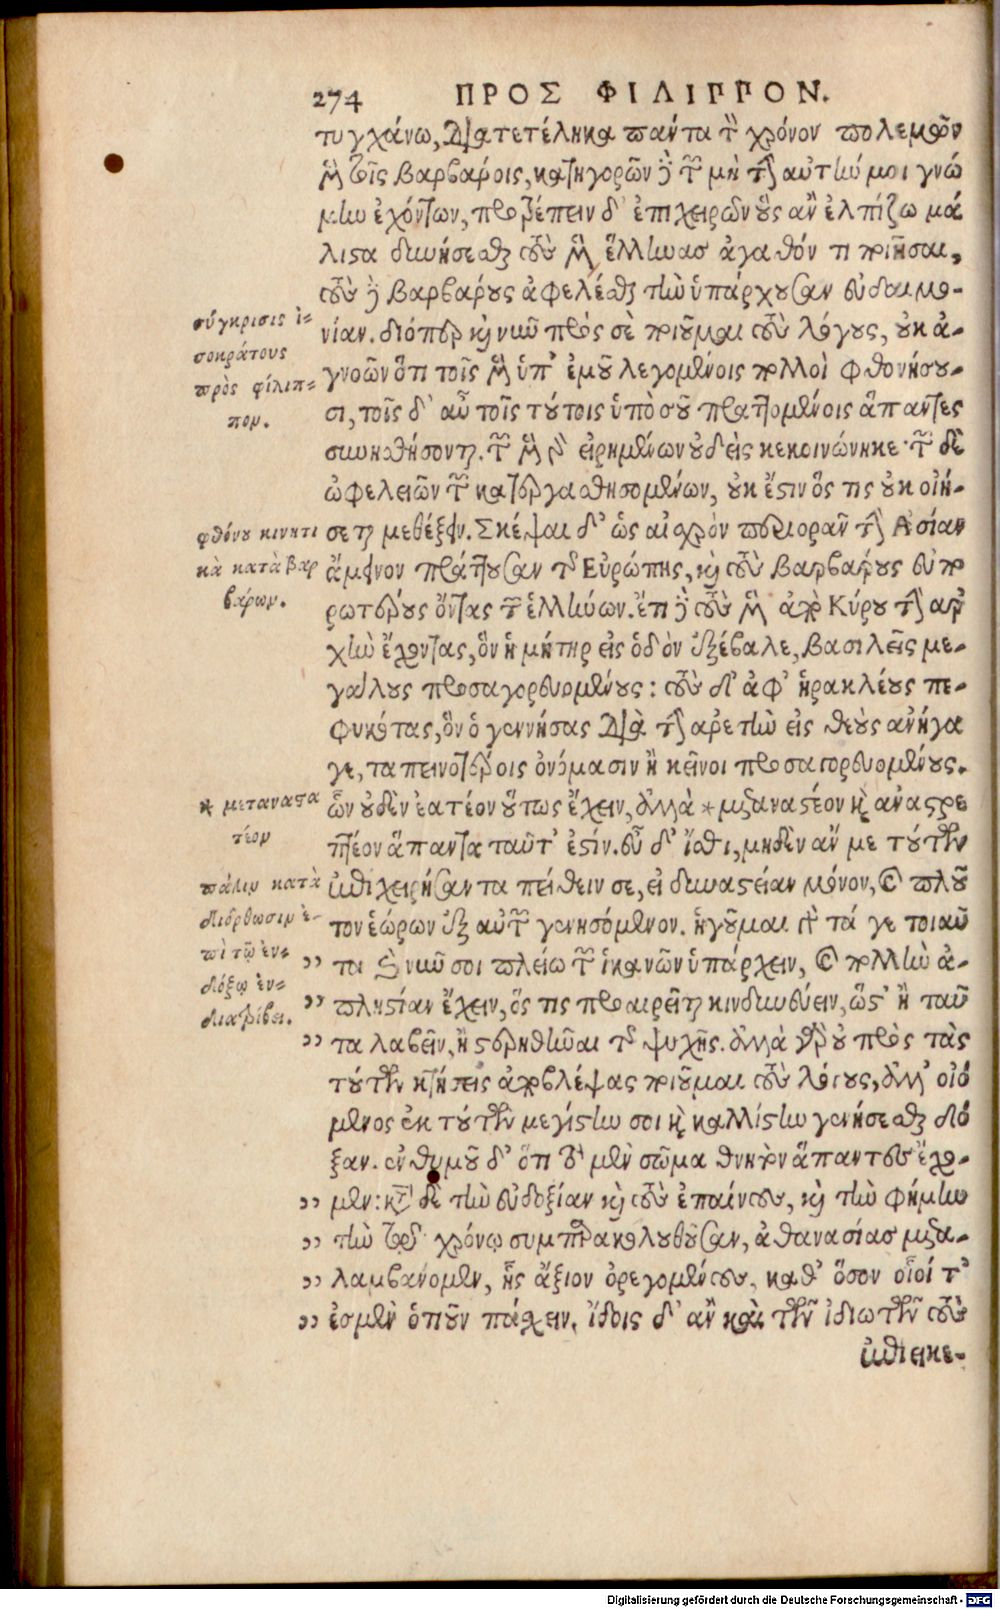 274 ΠΡΟΣ ΦΙΛΙΠΠΟΝ.
τυγχάνω, διατετέληκα πάντα τὸν χρόνον πολεμῶν
μὲν τοῖς βαρβάροις, κατηγορῶν δὲ τῶν μὴ τὴν αὐτήν μοι γνώ
μην ἐχόντων, προτρέπειν δ' ἐπιχειρῶν οὓς ἂν ἐλπίζω μά
λιστα δυνήσεσθαι τοὺς μὲν ἕλληνας ἀγαθόν τι ποιῆσαι,
τοὺς δὲ βαρβάρους ἀφελέσθαι τὴν ὑπάρχουσαν εὐδαιμο-
νίαν. διόπερ καὶ νῦν πρὸς σὲ ποιοῦμαι τοὺς λόγους, οὐκ ἀ-
γνοῶν ὅτι τοῖς μὲν ὑπ' ἐμοῦ λεγομένοις πολλοὶ φθονήσου-
σι, τοῖς δ' αὖ τοῖς τούτοις ὑπὸ σοῦ πραττομένοις ἅπαντες
συνησθήσονται. τῶν μὲν γὰρ εἰρημένων οὐδεὶς κεκοινώνηκε· τῶν δὲ
ὠφελειῶν τῶν κατεργασθησομένων, οὐκ ἔστιν ὅς τις οὐκ οἰή-
σεται μεθέξειν. Σκέψαι δ' ὡς αἰσχρὸν περιορᾶν τὴν Ἀσίαν
ἄμεινον πράττουσαν τῆς Εὐρώπης, καὶ τοὺς βαρβάρους εὐπο
ρωτέρους ὄντας τῶν ἑλλήνων. ἔτι δὲ τοὺς μὲν ἀπὸ Κύρου τὴν ἀρ
χὴν ἔχοντας, ὃν ἡ μήτηρ εἰς ὁδὸν ἐξέβαλε, βασιλεῖς με-
γάλους προσαγορευομένους: τοὺς δ' ἀφ' ἡρακλέους πε-
φυκότας, ὃν ὁ γεννήσας διὰ τὴν ἀρετὴν εἰς θεοὺς ἀνήγα
γε, ταπεινοτέροις ὀνόμασιν ἢ κεῖνοι προσαγορευομένους.
ὧν οὐδὲν ἐατέον οὕτως ἔχειν, ἀλλὰ * μεταναστέον καὶ ἀναστρε
πτέον ἅπαντα ταῦτ' ἐστίν. εὖ δ' ἴσθι, μηδὲν ἄν με τούτων
ἐπιχειρήσαντα πείθειν σε, εἰ δυναστείαν μόνον, καὶ πλοῦ
τον ἑώρων ἐξ αὐτῶν γενησόμενον. ἡγοῦμαι γὰρ τά γε τοιαῦ
,, τα καὶ νῦν σοι πλείω τῶν ἱκανῶν ὑπάρχειν, καὶ πολλὴν ἀ-
,, πληστίαν ἔχειν, ὅς τις προαιρεῖται κινδυνεύειν, ὥστ' ἢ ταῦ
,, τα λαβεῖν, ἢ στερηθῆναι τῆς ψυχῆς. ἀλλὰ γὰρ οὐ πρὸς τὰς
τούτων κτήσεις ἀποβλέψας ποιοῦμαι τοὺς λόγους, ἀλλ' οἰό
μενος ἐκ τούτων μεγίστην σοι καὶ καλλίστην γενήσεσθαι δό
ξαν. ἐνθυμοῦ δ' ὅτι τὸ μὲν σῶμα θνητὸν ἅπαντες ἔχο-
,, μεν: κατὰ δὲ τὴν εὐδοξίαν καὶ τοὺς ἐπαίνους, καὶ τὴν φήμην
,, τὴν τῷ χρόνῳ συμπαρακολουθοῦσαν, ἀθανασίας μετα-
,, λαμβάνομεν, ἧς ἄξιον ὀρεγομένους, καθ' ὅσον οἷοί τ'
,, ἐσμὲν ὁτιοῦν πάσχειν. ἴδοις δ' ἂν καὶ τῶν ἰδιωτῶν τοὺς
ἐπιεικε-
σύγκρισις ἰ-
σοκράτους
πρὸς φίλιπ-
πον.
φθόνου κινητι
κὰ κατὰ βαρ
βάρων.
* μεταναστα
τέον
πάλιν κατὰ
διόρθωσιν ἐ-
πὶ τῷ ἐν-
δόξῳ ἐν-
διατρίβει.
Digitalisierung gefördert durch die Deutsche Forschungsgemeinschaft - DFG